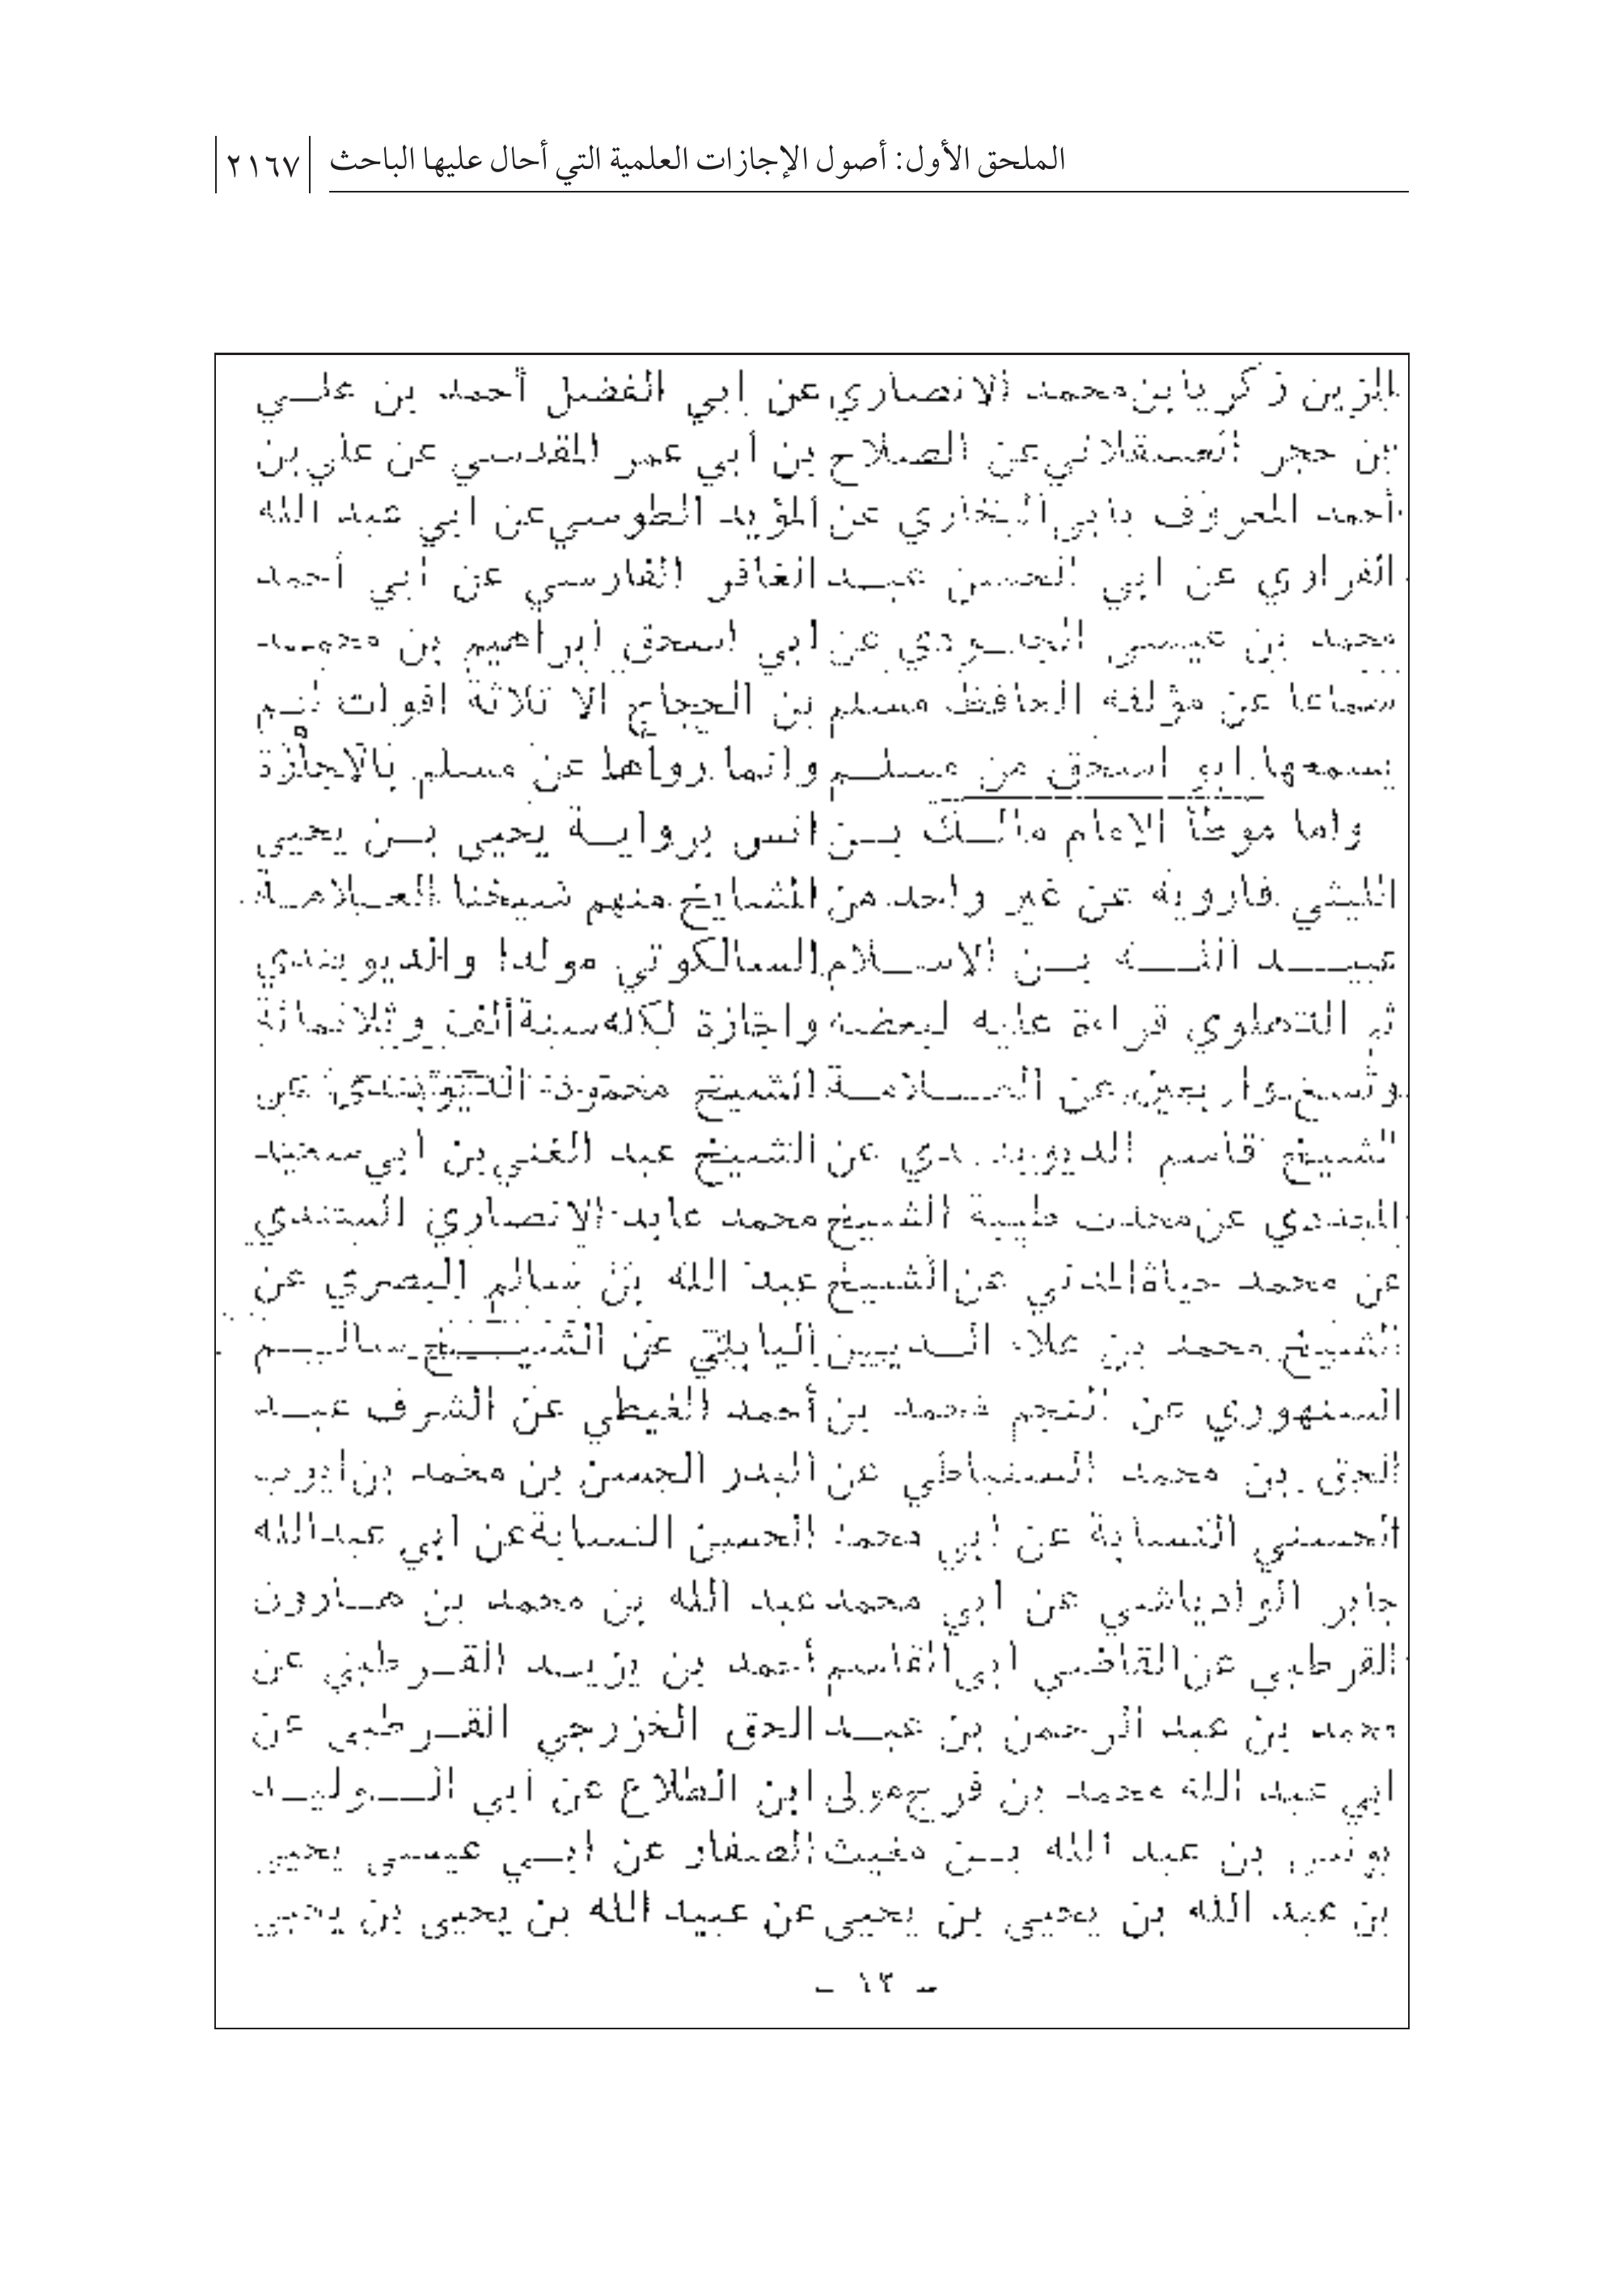 الملحق الأول: أصول الإجازات العلمية التي أحال عليها الباحث ٢١٦٧
الزين زكريا بن محمد الانصاري عن ابي الفضل أحمد بن علي
بن حجر العسقلاني عن الصلاح بن أبي عمر المقدسي عن علي بن
أحمد المعروف بابي البخاري عن المؤيد الطوسي عن ابي عبد الله
الفراوي عن ابي الحسن عبد الغافر الفارسي عن أبي أحمد
محمد بن عيسى الجلودي عن ابي اسحق ابراهيم بن محمد
سماعا عن مؤلفه الحافظ مسلم بن الحجاج الا ثلاثة افوات لم
يسمعها ابو اسحق من مسلم وانما رواها عن مسلم بالاجازة
واما موطأ الإمام مالك بن انس برواية يحيى بن يحيى
الليثي فارويه عن غير واحد من المشايخ منهم شيخنا العلامة
عبيد الله بن الاسلام السالكوتي مولدا والديوبندي
ثم الدهلوي قراءة عليه لبعضه واجازة لكله سنة ألف وثلاثمائة
وتسع واربعين عن العلامة الشيخ محمود الديوبندي عن
الشيخ قاسم الديوبندي عن الشيخ عبد الغني بن ابي سعيد
المجددي عن محدث طيبة الشيخ محمد عابد الانصاري السندي
عن محمد حياة المدني عن الشيخ عبد الله بن سالم البصري عن
الشيخ محمد بن علاء الديين البابلي عن الشيخ سالم
السنهوري عن النجم محمد بن أحمد الغيطي عن الشرف عبد
الحق بن محمد السنباطي عن البدر الحسن بن محمد بن ايوب
الحسني النسابة عن ابي محمد الحسن النسابة عن ابي عبدالله
جابر الوادياشي عن ابي محمد عبد الله بن محمد بن هارون
القرطبي عن القاضي ابي القاسم أحمد بن يزيد القرطبي عن
محمد بن عبد الرحمن بن عبد الحق الخزرجي القرطبي عن
ابي عبد الله محمد بن فرج مولى ابن الطلاع عن أبي الوليد
يونس بن عبد الله بن مغيث الصفار عن ابي عيسى يحيى
بن عبد الله بن يحيى بن يحيى عن عبيد الله بن يحيى بن يحيى
- ١٣ -